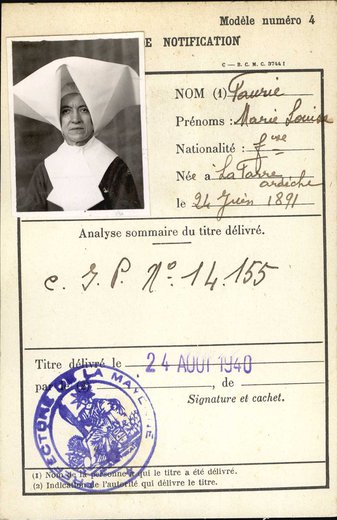 Modèle numéro 4
E NOTIFICATION
C — B. C. N. C. 3744 I
NOM (1) Fourie
Prénoms : Marie Louise
Nationalité : fçse
Née a La Farre
ardèche
le 24 Juin 1891
Analyse sommaire du titre délivré.
C. I. P. No. 14.155
Titre délivré le 24 AOUT 1940
par , de
Signature et cachet.
DE LA MAYENNE
(1) Nom de la personne à qui le titre a été délivré.
(2) Indication de l'autorité qui délivre le titre.